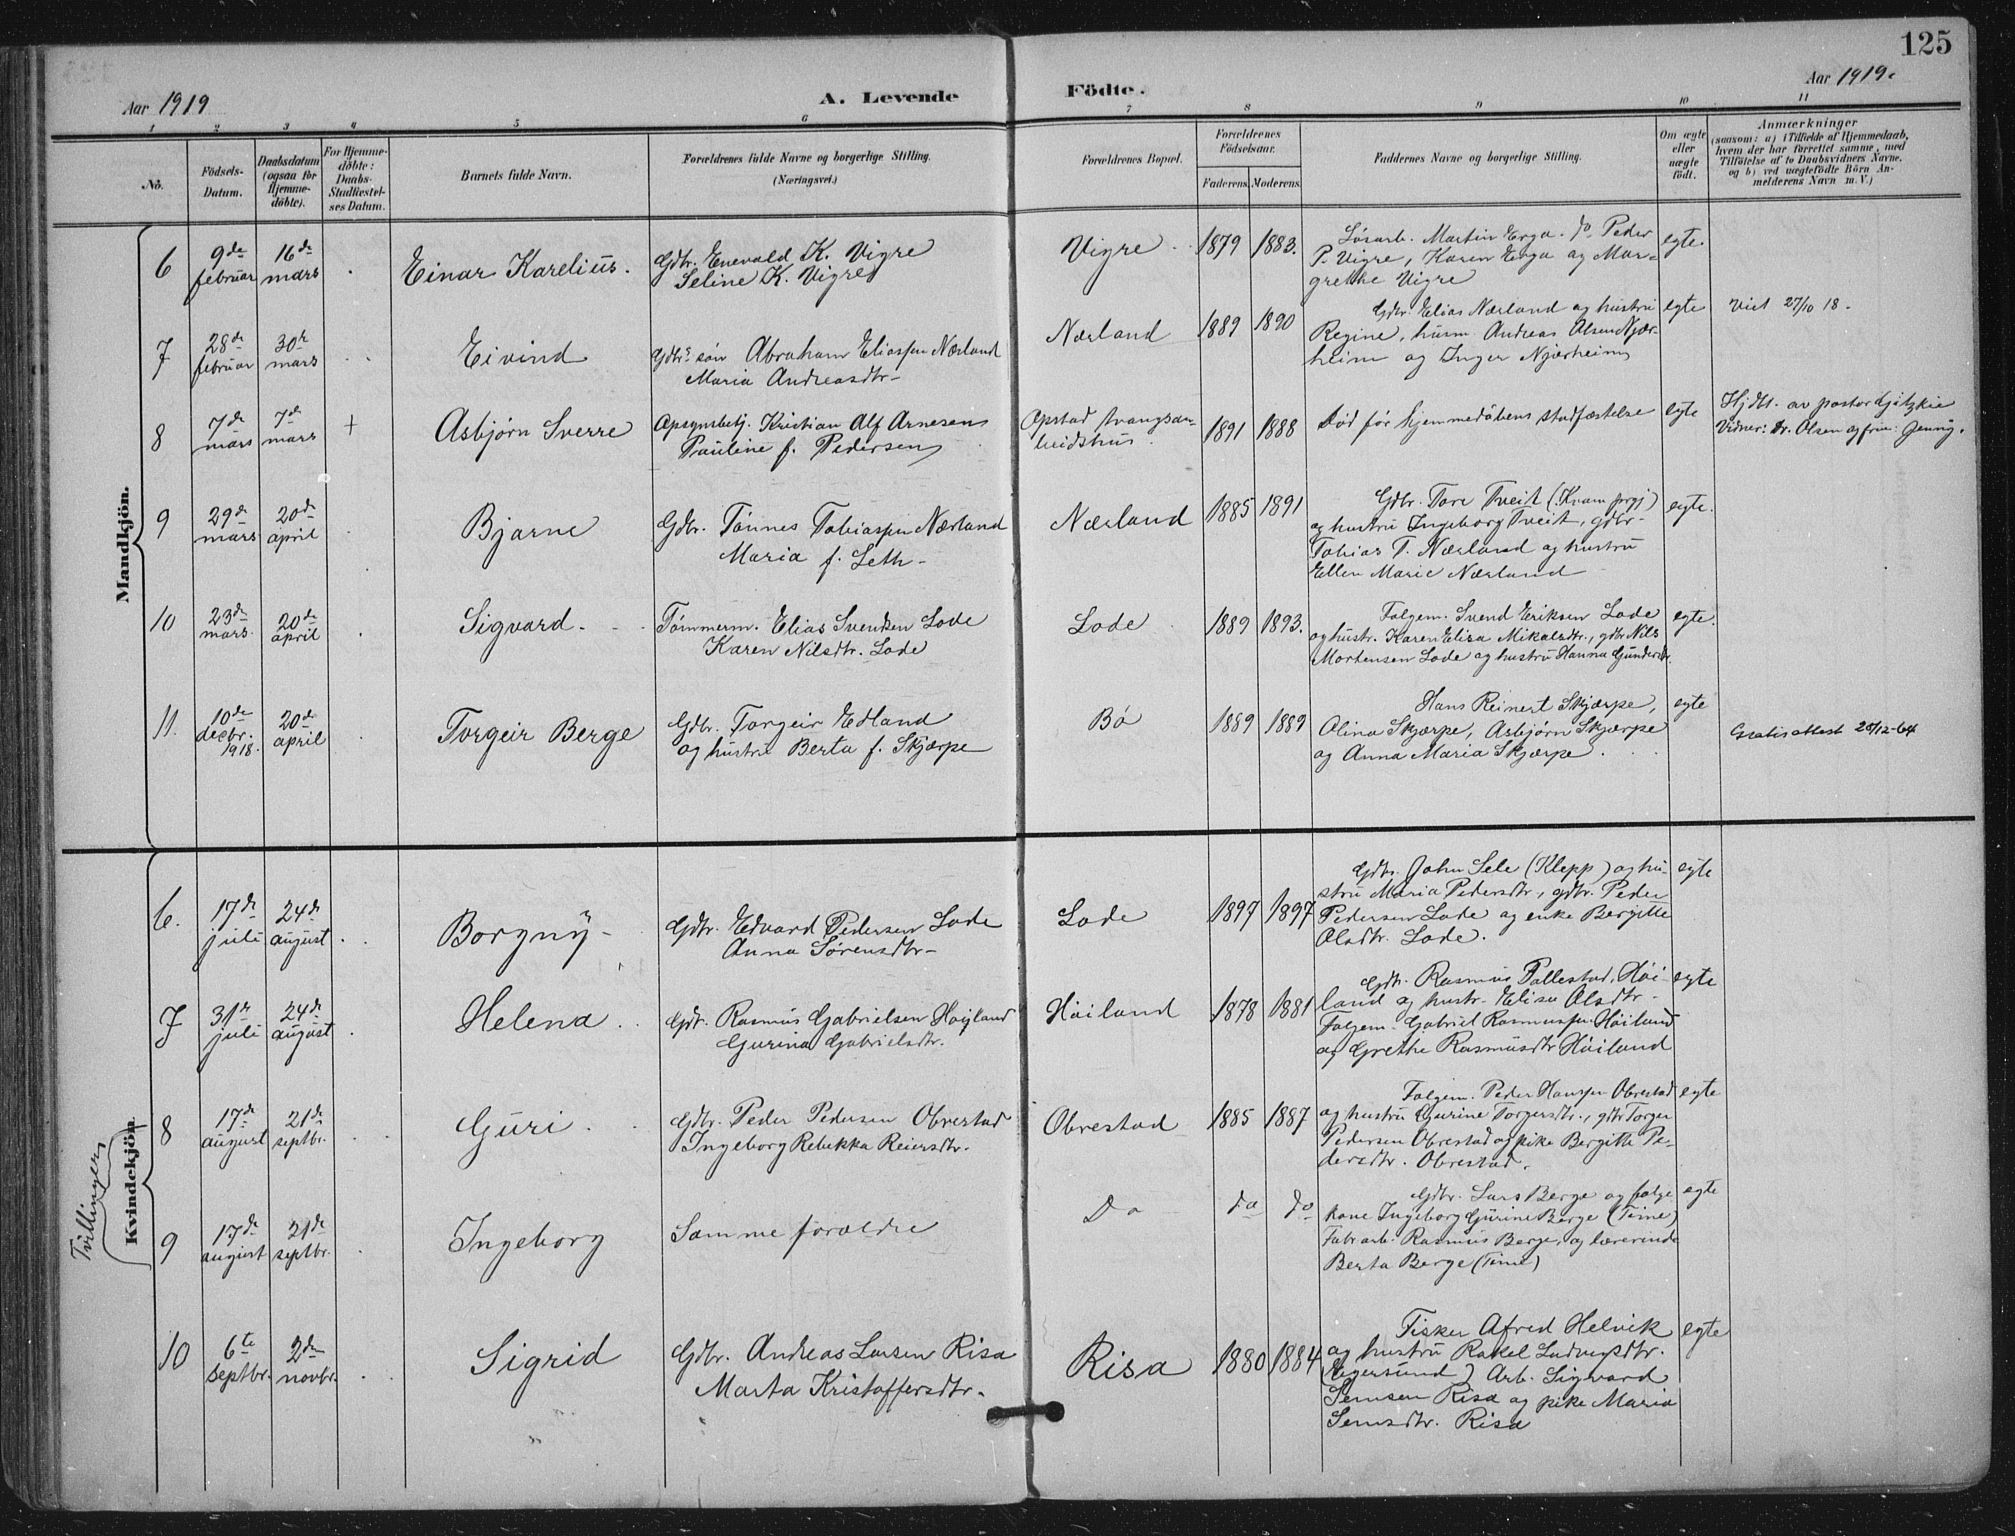 125
Aar 1919
A. Levende
Födte.
Aar 1919.
1 2 3 4 5 6 7 8 9 10 11
No.
Födsels-
Datum.
Daabsdatum
(ogsaa for
Hjemme-
döbte).
For Hjemme-
döbte:
Daabs-
Stadfæstel-
ses Datum.
Barnets fulde Navn.
Forældrenes fulde Navne og borgerlige Stilling.
(Næringsvei.)
Forældrenes Bopæl.
Forældrenes
Födselsaar.
Faderens.
Moderens.
Faddernes Navne og borgerlige Stilling.
Om ægte
eller
uægte
födt.
Anmærkninger
(saasom: a) i Tilfælde af Hjemmedaab,
hvem der har forrettet samme, med
Tilföielse af to Daabsvidners Navne,
og b) ved uægtefödte Börn An-
melderens Navn m. V.)
Mandkjön.
6
9de
februar
16de
mars
Einar Karelius.
Gdbr. Enevald K. Vigre
Seline K. Vigre
Vigre
1879
1883.
Løsarb. Martin Erga. do Peder
P. Vigre, Karen Erga og Mar-
grethe Vigre
egte.
7
28de
februar
30te
mars
Eivind
Gdbrs søn Abraham Eliassen Nærland
Maria Andreasdtr-
Nærland
1889
1890
Gdbr. Elias Nærland og hustru
Regine, husm. Andreas Olsen Njær-
heim og Inger Njærheim
egte
Viet 27/10 18.
8
7de
mars
7de
mars
+
Asbjørn Sverre
Opsynsbetj. Kristian Alf Arnesen
Pauline f. Pedersen
Opstad tvangsar-
beidshus
1891
1888
Død før hjemmedåbens stadfæstelse
egte
Hjdbt. av pastor
Vidner: Dr. Olsen og fru
9
29de
mars
20de
april
Bjarne
Gdbr. Tønnes Tobiassen Nærland
Maria f. Leth-
Nærland
1885
1891
Gdbr. Tore Tveit (Kvam prgj)
og hustru Ingeborg Tveit, gdbr-
Tobias T. Nærland og hustru
Ellen Marie Nærland
egte.
10
23de
mars.
20de
april
Sigvard.
Tømmerm. Elias Svendsen Lode
Karen Nilsdtr. Lode
Lode
1889
1893.
Folgem. Svend Eriksen Lode
og hustr. Karen Elisa Mikalsdtr., gdbr Nils
Mortensen Lode og hustru Hanna Gundersdtr.
egte.
11.
10de
decbr.
1918.
20de
april
Torgeir Berge
Gdbr. Torgeir Edland
og hustru Berta f. Skjærpe
Bø
1889
1889
Hans Reinert Skjærpe,
Olina Skjærpe, Asbjørn Skjærpe
og Anna Maria Skjærpe
egte
Gratis attest 28/12-64
Kvindekjön.
6.
17de
juli
24de
august
Borgny-
Gdbr. Edvard Pedersen Lode
Anna Sørensdtr-
Lode
1897
1897
Gdbr. John Sele (Klepp) og hu-
stru Maria Pedersdtr, gdbr. Peder
Pedersen Lode og enke Bergitte
Olsdtr. Lode.
egte
7
31te
juli
24de
august
Helena
Gdbr. Rasmus Gabrielsen Høiland
Gurina Gabrielsdtr.
Høiland
1878
1881
Gdbr. Rasmus Pallestad, Høi-
land og hustr. Elisa Olsdtr.
Folgem. Gabriel Rasmussen Høiland
og Grethe Rasmusdtr Høiland
egte
Tvillinger
8
17de
august
21de
septbr.
Guri
Gdbr. Peder Pedersen Obrestad
Ingeborg Rebekka Reiersdtr.
Obrestad
1885
1887
Folgem. Peder Hansen Obrestad
og hustru Gurine Torgersdtr., gdbr Torger
Pedersen Obrestad og pike Bergitte Pe-
dersdtr. Obrestad.
egte
9
17de
august
21de
septbr.
Ingeborg
Samme forældre
Do
do
do
Gdbr. Lars Berge og følge
kone Ingeborg Gurine Berge (Time)
Fabr arb. Rasmus Berge, og lærerinde
Berta Berge (Time)
egte
10
6te
septbr.
2den
novbr.
Sigrid
Gdbr. Andreas Larsen Risa
Marta Kristoffersdtr.
Risa
1880
1884
Fisker Afred Helvik
og hustru Rakel Ludvigsdtr.
(Egersund) Arb. Sigvard
Semsen Risa og pike Maria
Semsdtr. Risa
egte